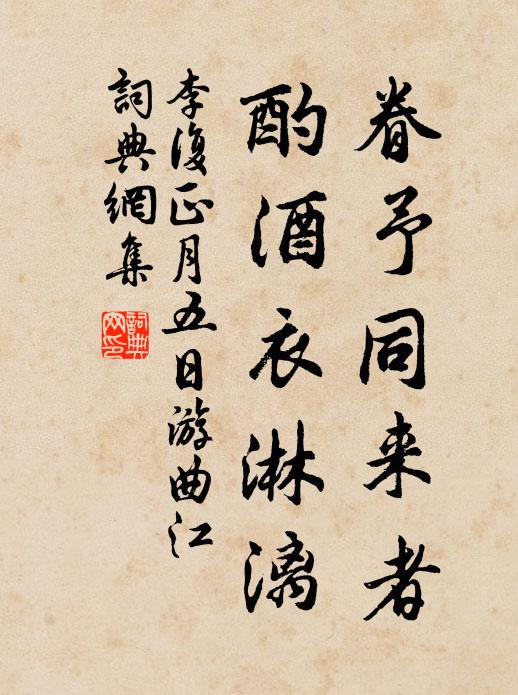 眷予同来者
酌酒衣淋漓
李復正月五日游曲江
詞典網集
詞典網印